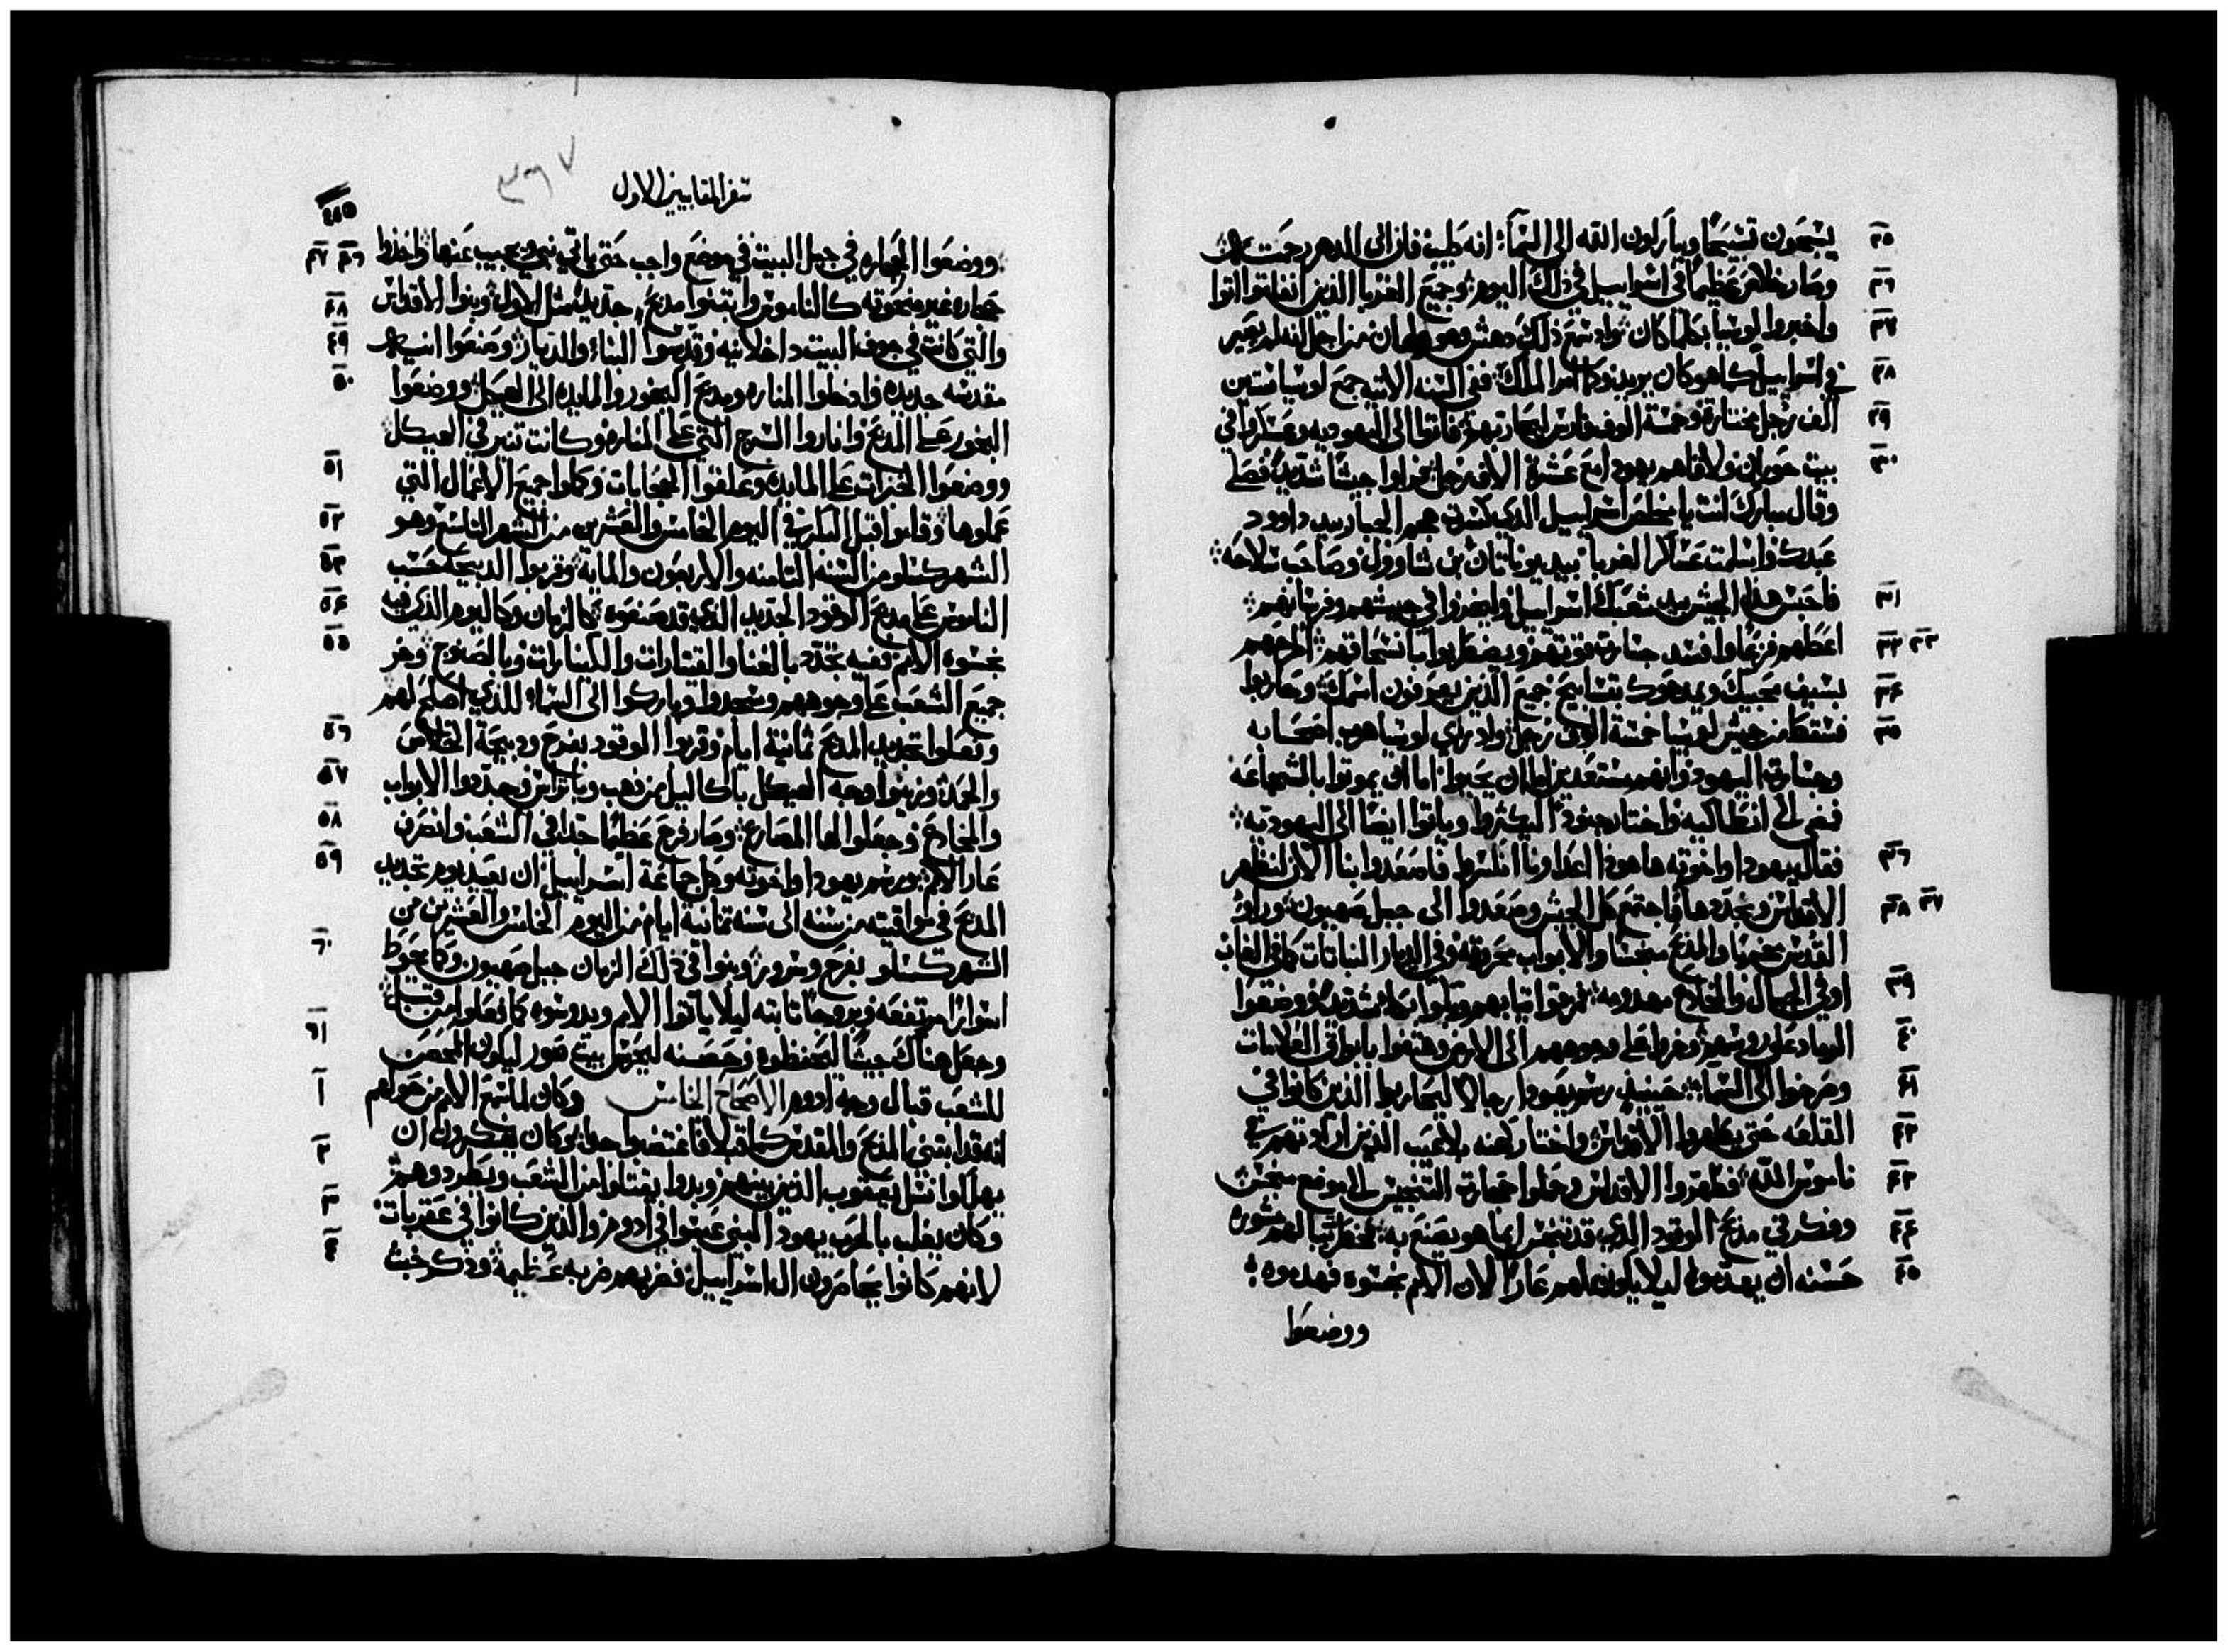 ٢٥ يسبحون تسبيحًا ويباركون الله الى السماء: انه طيب فان الى الدهر رحمته
٢٦ وصار خلاص عظيم في اسراييل في ذلك اليوم وجميع الغربا الذين انفلتوا اتوا
٢٧ واخبروا لوسيا بكلما كان واد سمع ذلك دهش من اجل انه لم يصير
٢٨ في اسراييل كما هو كان يريد وكما امر الملك ففي السنه الاتيه جمع لوسيا ستين
٢٩ الف رجل مختاره وخمسة الوف فارس ليحاربهم فاتوا الى اليهوديه وعسكروا في
٣٠ بيت حوران ولاقاهم يهودا مع عشرة الاف رجل جيشًا شديد فصلى
وقال مبارك انت يا مخلص اسراييل الذي كسرت هجم الجبار بيد داوود
عبدك واسلمت عسكر الغربا بيد يوناتان بن شاوول وصاحب سلاحه
٣١ فاحبس هذا الجيش بيد شعبك اسراييل وليخزوا في جيشهم وفرسانهم
٣٢ ٣٣ اعطهم فزعًا وافسد جسارة قوتهم ويضطربوا بانسحاقهم اطرحهم
٣٤ بسيف محبيك ويمدحوك بتسابيح جميع الذين يعرفون اسمك وحاربوا
٣٥ فسقط من جيش لوسيا خمسة الاف رجل واد راي لوسيا هرب اصحابه
وجسارة اليهود وانهم مستعدين اما ان يحيوا اما ان يموتوا بالشجاعه
فمضى الى انطاكيه واختار جنودًا ليكثروا وياتوا ايضًا الى اليهوديه
٣٦ فقال يهودا واخوته ها هوذا اعداونا انكسروا فلنصعد الان لنطهر
٣٧ ٣٨ الاقداس ونجددها فاجتمع كل الجيش وصعدوا الى جبل صهيون وراوا
القدس خربًا والمذبح منجسًا والابواب محروقه وفي الديار النباتات كما في الغاب
٣٩ او في الجبال والمخادع مهدومه فمزقوا تيابهم وبكوا بكاءً شديدًا ووضعوا
٤٠ الرماد على روسهم وخروا على وجوههم الى الارض وهتفوا بابواق العلامات
٤١ وصرخوا الى السماء حينيذ رسم يهودا رجالا ليحاربوا الذين كانوا في
٤٢ القلعه حتى يطهروا الاقداس واختار كهنه بلا عيب الذين ارادتهم في
٤٣ ناموس الله فطهروا الاقداس وحملوا حجارة التنجيس الى موضع منجس
٤٤ وفكر في مذبح الوقود الذي قد تنجس ايما هو يصنع به فخطرت لهم مشوره
٤٥ حسنه ان يهدموه ليلا يكون لهم عارًا لان الامم نجسوه فهدموه
ووضعوا
سفر المقابيين الاول
٣٦٧
٤٨٥
٤٦ ٤٧ ووضعوا الحجاره في جبل البيت في موضع واجب حتى ياتي نبي ويجيب عنها واخذوا
٤٨ حجاره غير منحوته كالناموس وابتنوا مذبحًا جديدًا مثل الاول وبنوا الاقداس
٤٩ والتي كانت في جوف البيت داخلانيه وقدسوا البناء والديار وصنعوا انيه
٥٠ مقدسه جديده وادخلوا المناره ومذبح البخور والمايده الى الهيكل ووضعوا
البخور على المذبح واناروا السرج التي على المناره وكانت تنير في الهيكل
٥١ ووضعوا الخبزات على المايده وعلقوا الحجابات وكملوا جميع الاعمال التي
٥٢ عملوها وقاموا قبل الباكر في اليوم الخامس والعشرين من الشهر التاسع وهو
٥٣ الشهر كسلو من السنه التامنه والاربعون والمايه وقربوا الدبيحه حسب
٥٤ الناموس على مذبح الوقود الجديد الذي قد صنعوه كالزمان وكاليوم الذي فيه
٥٥ نجسوه الامم ففيه تجدد بالغنا والقيتارات والكنارات وبالصنوج وخر
جميع الشعب على وجوههم وسجدوا وباركوا الى السماء للذي اصلح لهم
٥٦ وعملوا تجديد المذبح تمانية ايام وقربوا الوقود بفرح ودبيحة الخلاص
٥٧ والحمد وزينوا وجه الهيكل باكاليل من ذهب وباتراس وجددوا الابواب
٥٨ والمخادع وجعلوا لها المصارع وصار فرح عظيمًا جدًا في الشعب وانصرف
٥٩ عار الامم ورسم يهودا واخوته وكل جماعة اسراييل ان يعيد يوم تجديد
المذبح في مواقيته من سنه الى سنه تمانية ايام من اليوم الخامس والعشرين من
٦٠ الشهر كسلو بفرح وسرور وبنوا في ذلك الزمان جبل صهيون وكما يحوط
اسوارًا مرتفعه وبروجًا تابته ليلا ياتوا الامم ويدوسوه كما فعلوا من قبل
٦١ وجعل هناك جيشًا ليحفظوه وحصنه ليحرس بيت صور ليكون الحصن
١ للشعب قبال وجه ادوم الاصحاح الخامس وكان لما سمع الامم من حولهم
٢ انه قد ابتني المذبح والمقدس كما قبلًا فاغتضبوا جدًا وكان يفكرون ان
يهلكوا نسل يعقوب الذين بينهم وبدوا يقتلوا من الشعب ويطردوهم
٣ وكان يغلب بالحرب يهودا لبني عيسوا في ادوم والذين كانوا في عقربات
٤ لانهم كانوا يحاصرون ال اسراييل فضربهم ضربه عظيمه وذكر خبث